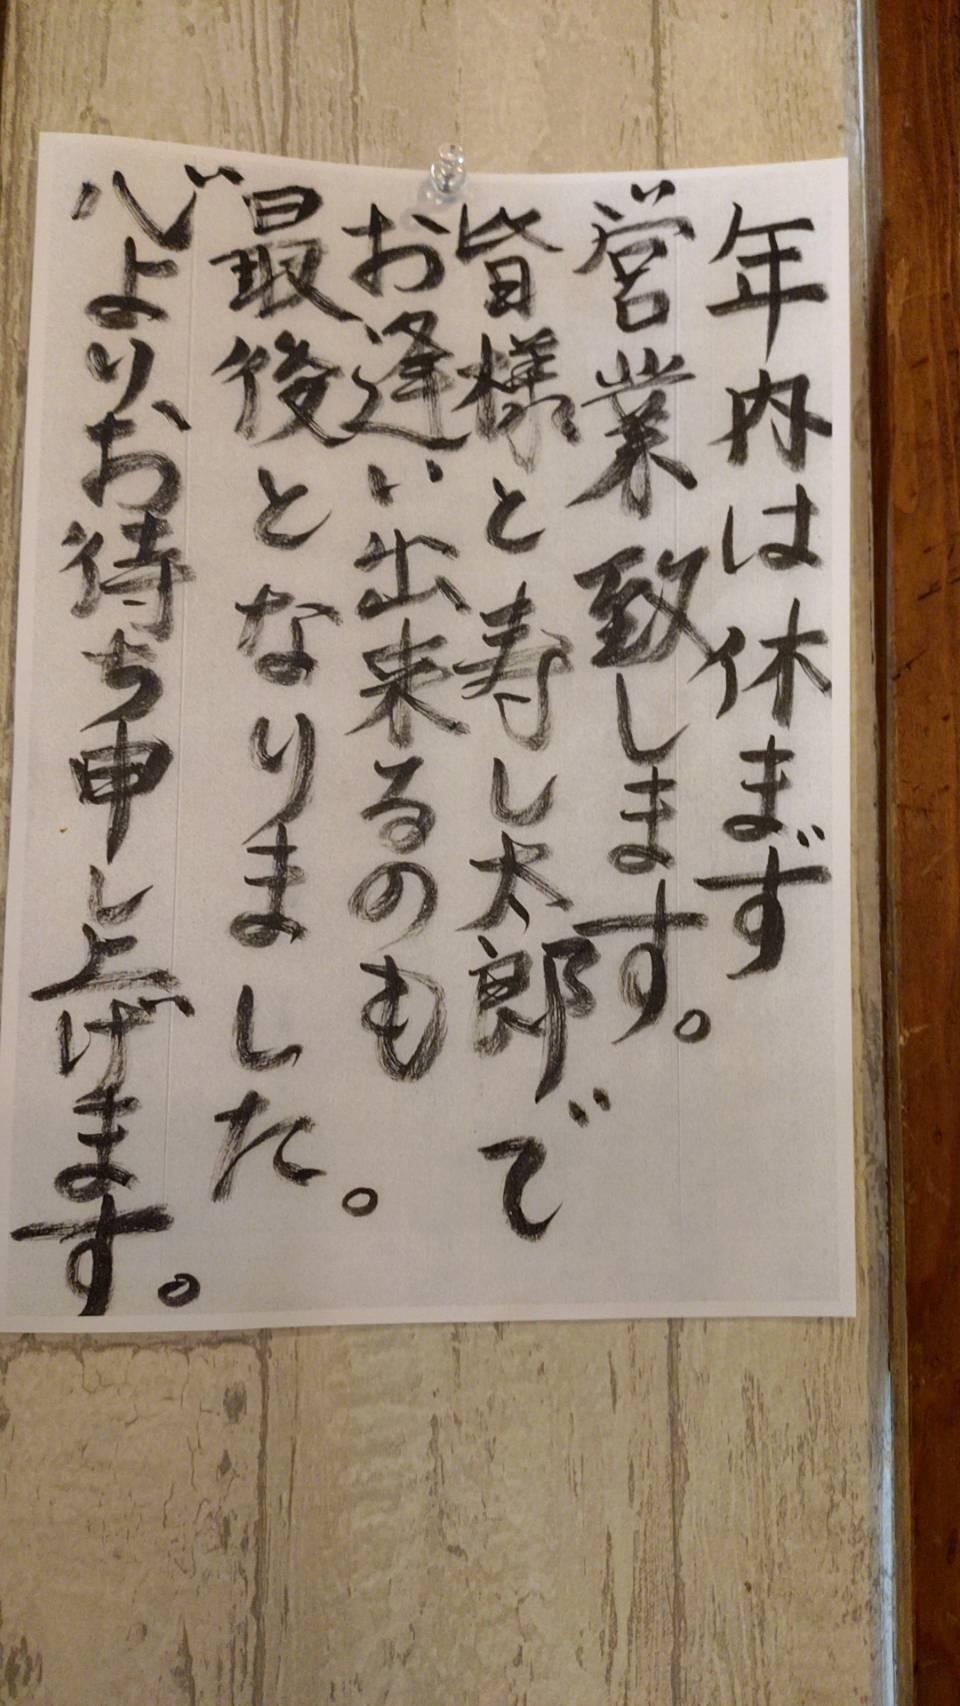 年内は休まず
営業致します。
皆様と寿し太郎で
お逢い出来るのも
最後となりました。
心よりお待ち申し上げます。